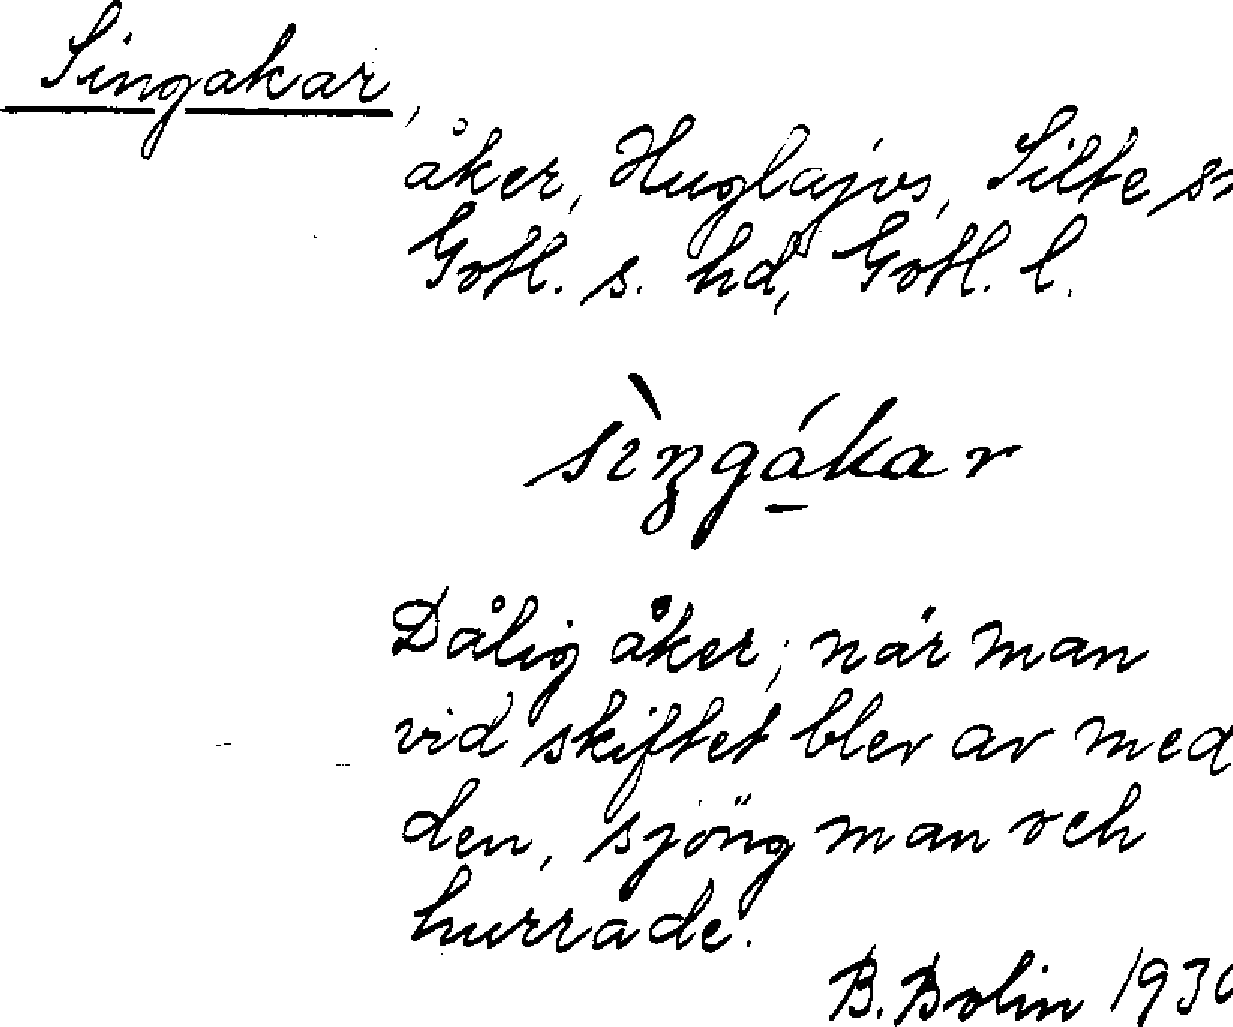 Singakar,
åker, Huglajvs, Silte sn
Gotl. s. hd, Gotl. l.
sìŋgákar
Dålig åker; när man
vid skiftet blev av med
den, sjöng man och
hurrade.
B. Bolin